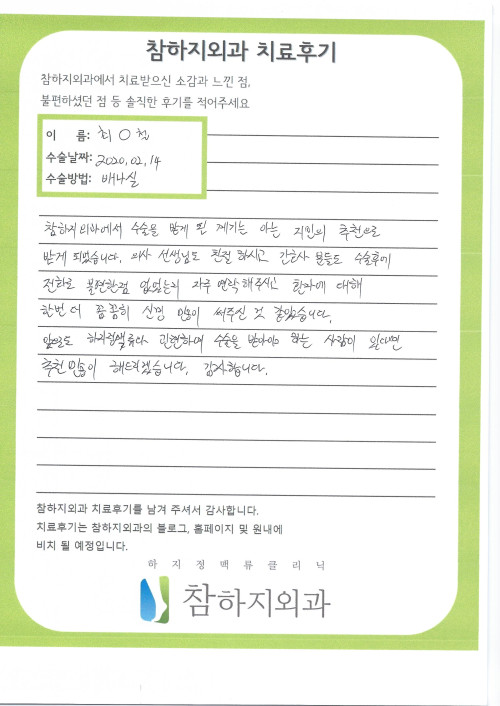 참하지외과 치료후기
참하지외과에서 치료받으신 소감과 느낀 점,
불편하셨던 점 등 솔직한 후기를 적어주세요
이 름: 최 O 철
수술날짜: 2020, 02, 14
수술방법: 베나실
참하지외과에서 수술을 받게 된 계기는 아는 지인의 추천으로
받게 되었습니다. 의사 선생님도 친절 하시고 간호사 분들도 수술후에
전화로 불편한점 없었는지 자주 연락해주시고 환자에 대해
한번 더 꼼꼼히 신경 많이 써주신 것 같았습니다.
앞으로도 하지정맥류와 관련하여 수술을 받아야 하는 사람이 있다면
추천 많이 해드리겠습니다. 감사합니다.
참하지외과 치료후기를 남겨 주셔서 감사합니다.
치료후기는 참하지외과의 블로그, 홈페이지 및 원내에
비치 될 예정입니다.
하지정맥류클리닉
참하지외과